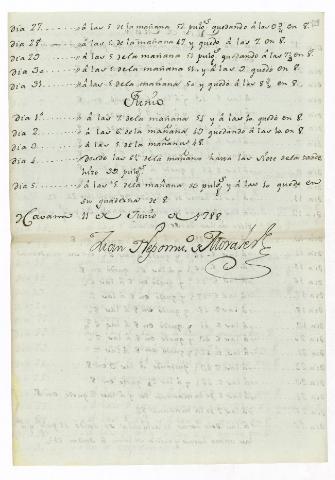 Dia 27........ á las 5 de la mañana 51 pulg.s quedando á las 9½ en 8.
Dia 28........ á las 5 de la mañana 47 y quedó á las 7. en 8.
Dia 29........ á las 5 de la mañana 51 pulg.s quedando á las 7½ en 8.
Dia 30........ á las 5 de la mañana 51 y á las 9 quedó en 8.
Dia 31........ á las 5 de la mañana 50 y quedó á las 8½ en 8.
Junio
Dia 1º........ á las 7 de la mañana 51 y á las 10 quedó en 8.
Dia 2........ á las 6 de la mañana 49 quedando á las 10 en 8.
Dia 3........ á las 5 de la mañana 48.
Dia 4........ desde las 5½ de la mañana hasta las siete de la tarde
hizo 39 pulg.s
Dia 5........ á las 5 de la mañana 50 pulg.s y á las 10 quedó en
su quadruna de 8.
Havana 11 de Junio de 1788
Juan Nepom.no de Morales